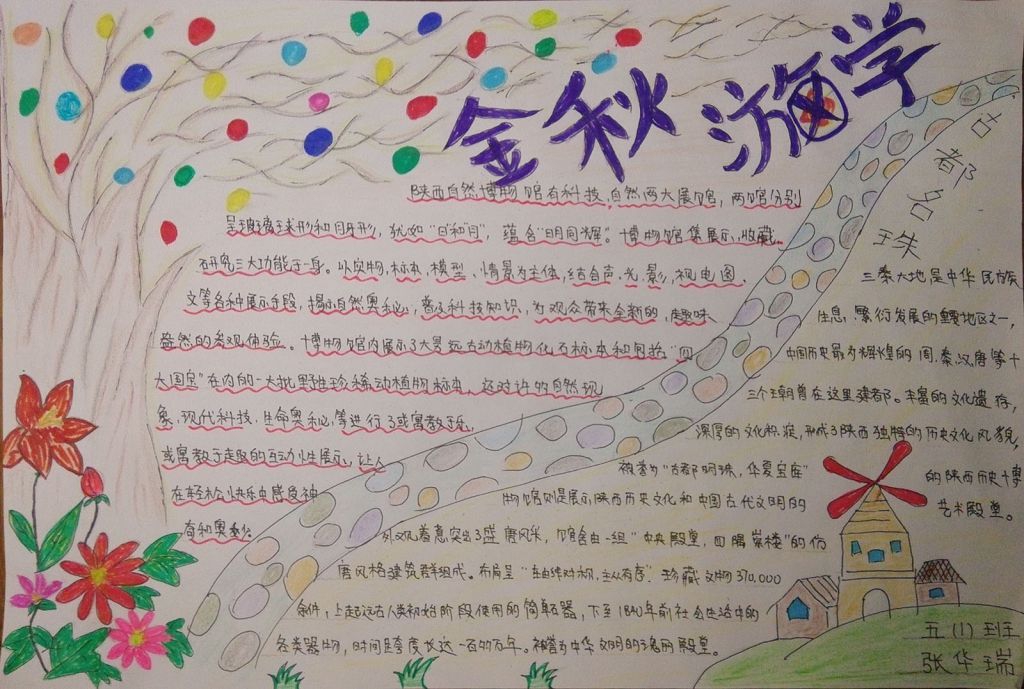 金秋游学
陕西自然博物馆有科技、自然两大展馆，两馆分别
呈玻璃球形和月牙形，犹如“日和月”，蕴含“日月同辉”。博物馆集展示、收藏、
研究三大功能于一身。以实物、标本、模型、情景为主体，结合声、光、影、视、电、图、
文等各种展示手段，揭示自然奥秘，普及科技知识，为观众带来全新的、趣味
盎然的参观体验。博物馆内展示了大量远古动植物化石标本和包括“四
大国宝”在内的一大批野生珍稀动植物标本，
象、现代科技、生命奥秘，等进行了或寓教于乐，
或寓教于趣的互动性展示，让人
在轻松快乐中感受神
奇和奥秘。
古都名珠
三秦大地是中华民族
生息、繁衍发展的重要地区之一，
中国历史最为辉煌的周、秦、汉、唐等十
三个王朝曾在这里建都。丰富的文化遗存，
深厚的文化积淀，形成了陕西独特的历史文化风貌，
被誉为“古都明珠，华夏宝库”的陕西历史博
物馆则是展示陕西历史文化和中国古代文明的艺术殿堂。
外观着意突出了盛唐风采，馆舍由一组“中央殿堂，四隅崇楼”的仿
唐风格建筑群组成。布局呈“轴线对称，主从有序”，珍藏文物370,000
余件，上起远古人类初始阶段使用的简单石器，下至1840年前社会生活中的
各类器物，时间跨度长达一百多万年。被誉为中华文明的瑰丽殿堂。
五(1)班
张华瑞